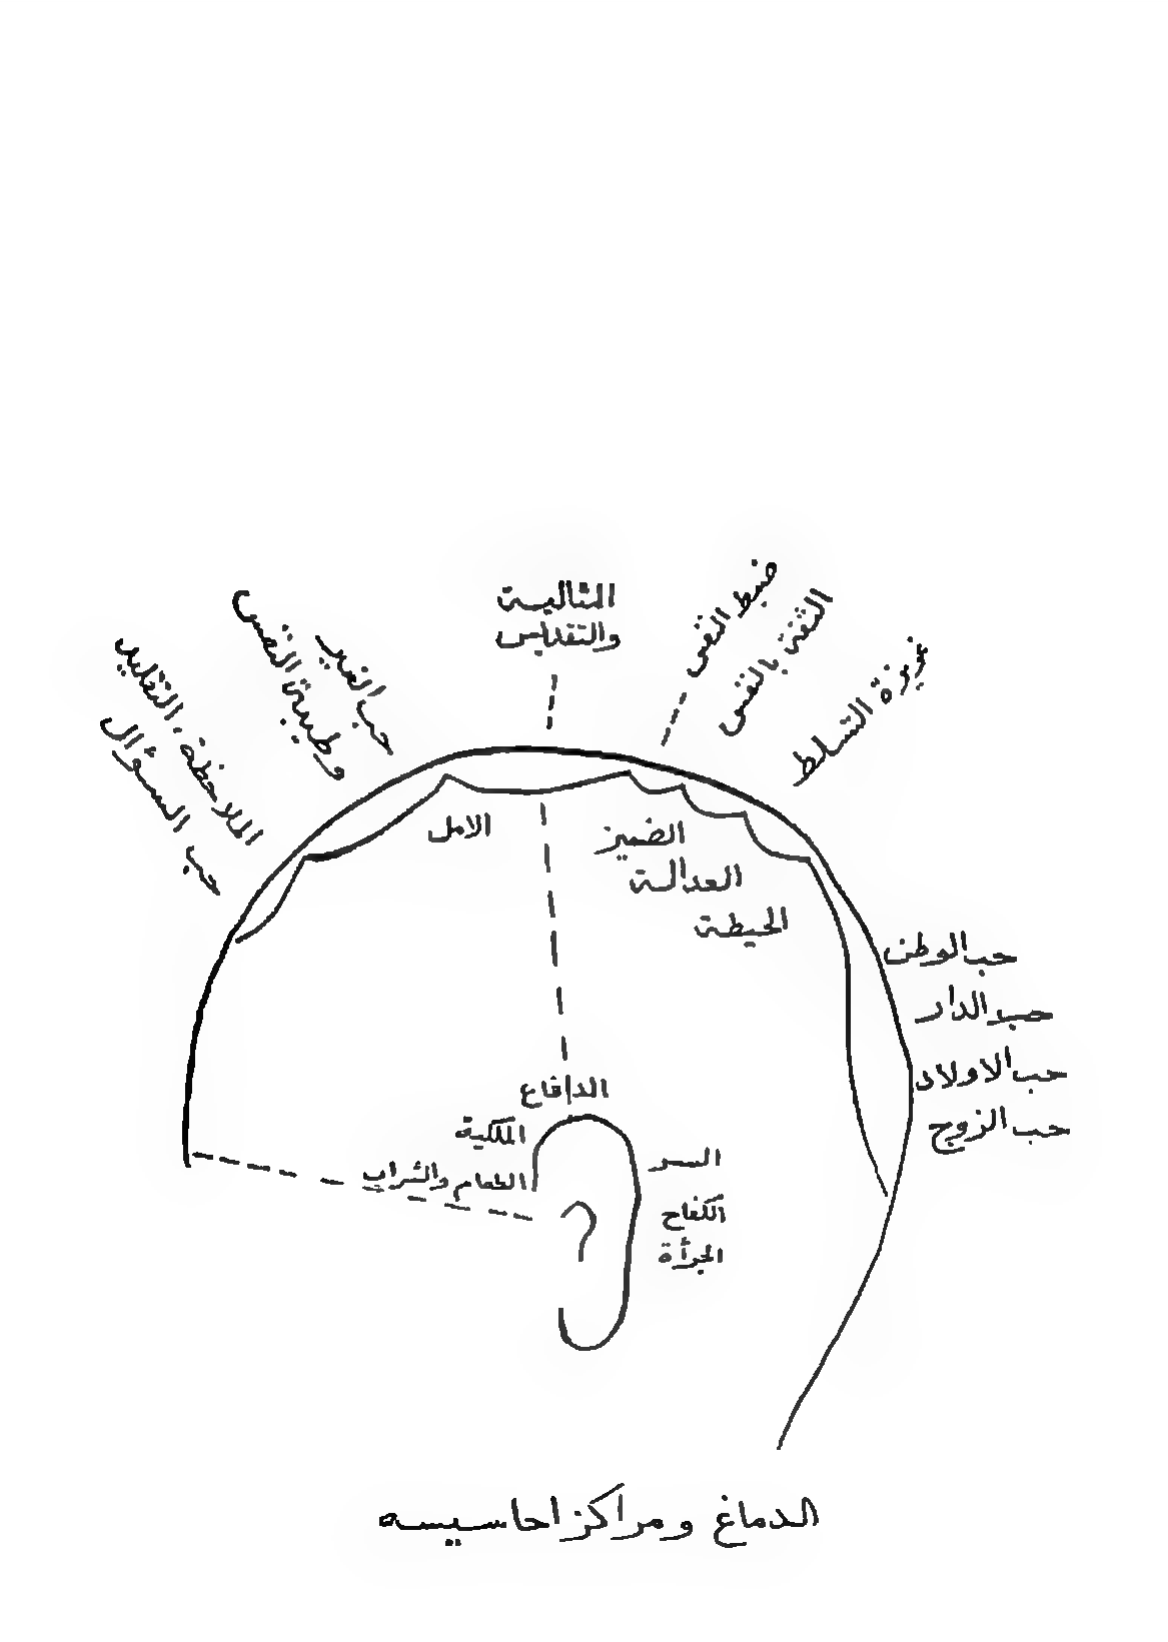 المثالية
والتقديس
ضبط النفس
الثقة بالنفس
غريزة التسلط
حب الغير
وطيبة النفس
الملاحظة، التقليد
حب السؤال
الامل
الضميز
العدالة
الحيطة
حب الوطن
حب الدار
حب الاولاد
حب الزوج
الدفاع
الملكية
الطعام والشراب
السر
الكفاح
الجرأة
الدماغ ومراكز احاسيسه